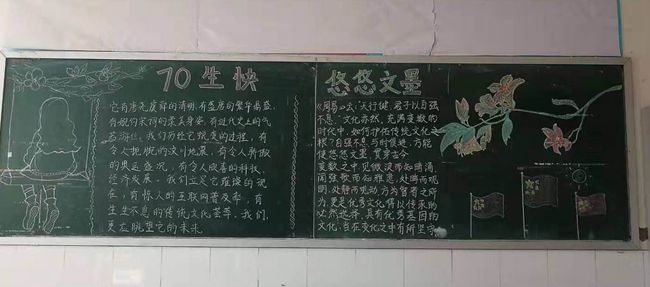 70生快
它有唐尧虞舜的清明,有盛唐的繁华富盛,
有婉约宋词的柔美身姿,有近代史上的气
我们历经它蜕变的过程,有
令人扼腕的汶川地震,有令人骄傲
的奥运盛况,有令人欣喜的科技、
经济发展。我们立足它璀璨的现
在,有惊人的互联网普及率,有
生生不息的传统文化荟萃,我们,
更在眺望它的未来。
悠悠文墨
《周易》云:“天行健,君子以自强
不息”,文化亦然,充满变数的
时代中,如何护佑传统文化之
根?自强不息,与时偕进,方能
使悠悠文墨,贯穿古今。
变数之中,见微溪而知海涌,
闻弦歌而知雅意,处晦而观
明,处静而观动,方为智者之所
为,更是优秀文化得以传承的
必然选择,具有优秀基因的
文化,当在变化之中有所坚守